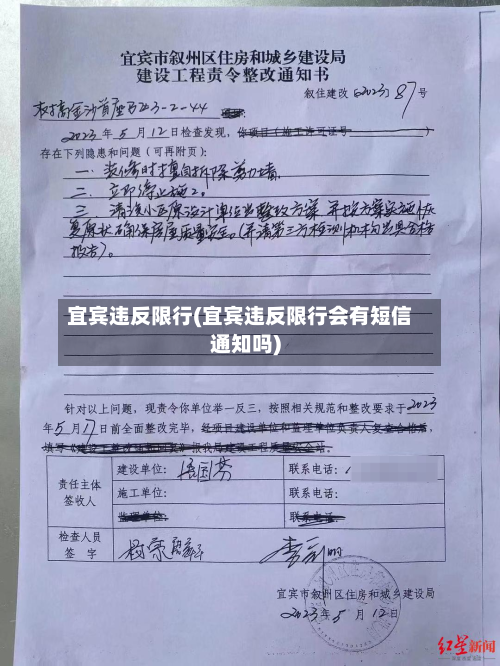 宜宾市叙州区住房和城乡建设局
建设工程责令整改通知书
叙住建改〔2023〕87号
金沙首座B23-2-44
2023年5月12日检查发现,你项目(施工许可证号)
存在下列隐患和问题(可再附页):
一、装修时擅自拆除剪力墙。
二、立即停止施工。
三、请该小区原设计单位出整改方案,并按方案实施恢
复原状确保房屋质量安全。(并请第三方检测机构出具合格
报告)。
宜宾违反限行(宜宾违反限行会有短信
通知吗)
针对以上问题,现责令你单位举一反三,按照相关规范和整改要求于2023
年5月17日前全面整改完毕,经项目建设单位和监理单位负责人复查合格后,
填写《建设工程整改回复》报我局建设工程质量安全站。
责任主体
签收人
建设单位:
联系电话:
施工单位:
联系电话:
监理单位:
联系电话:
检查人员
签 字
宜宾市叙州区住房和城乡建设局
2023年5月12日
红星新闻